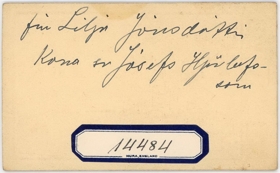 frú Lilja Jónsdóttir
Kona sr Jósefs Hjörleifs-
som
14484